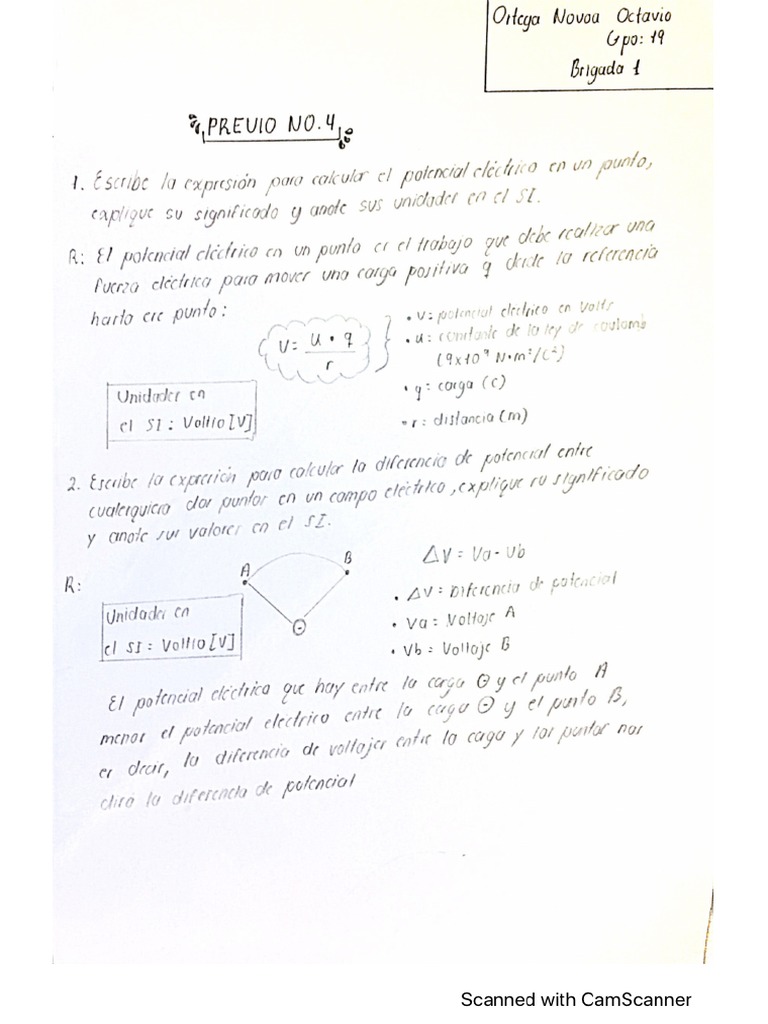 Ortega Novoa Octavio
Gpo: 19
Brigada 1
PREVIO NO. 4
1. Escribe la expresión para calcular el potencial eléctrico en un punto,
explique su significado y anote sus unidades en el SI.
R: El potencial eléctrico en un punto es el trabajo que debe realizar una
fuerza eléctrica para mover una carga positiva q desde la referencia
hasta ese punto:
V = u • q / r
• V: potencial electrico en Volts
• u: constante de la ley de coulomb
(9x10⁹ N•m²/C²)
• q: carga (c)
• r: distancia (m)
Unidades en
el SI: Voltio [V]
2. Escribe la expresión para calcular la diferencia de potencial entre
cualesquiera dos puntos en un campo eléctrico, explique su significado
y anote sus valores en el SI.
R:
A
B
⊖
Unidades en
el SI: Voltio [V]
ΔV = Va - Vb
• ΔV = Diferencia de potencial
• Va = Voltaje A
• Vb = Voltaje B
El potencial eléctrico que hay entre la carga ⊖ y el punto A
menos el potencial electrico entre la caga ⊖ y el punto B,
es decir, la diferencia de voltajes entre la caga y los puntos nos
dirá la diferencia de potencial
Scanned with CamScanner